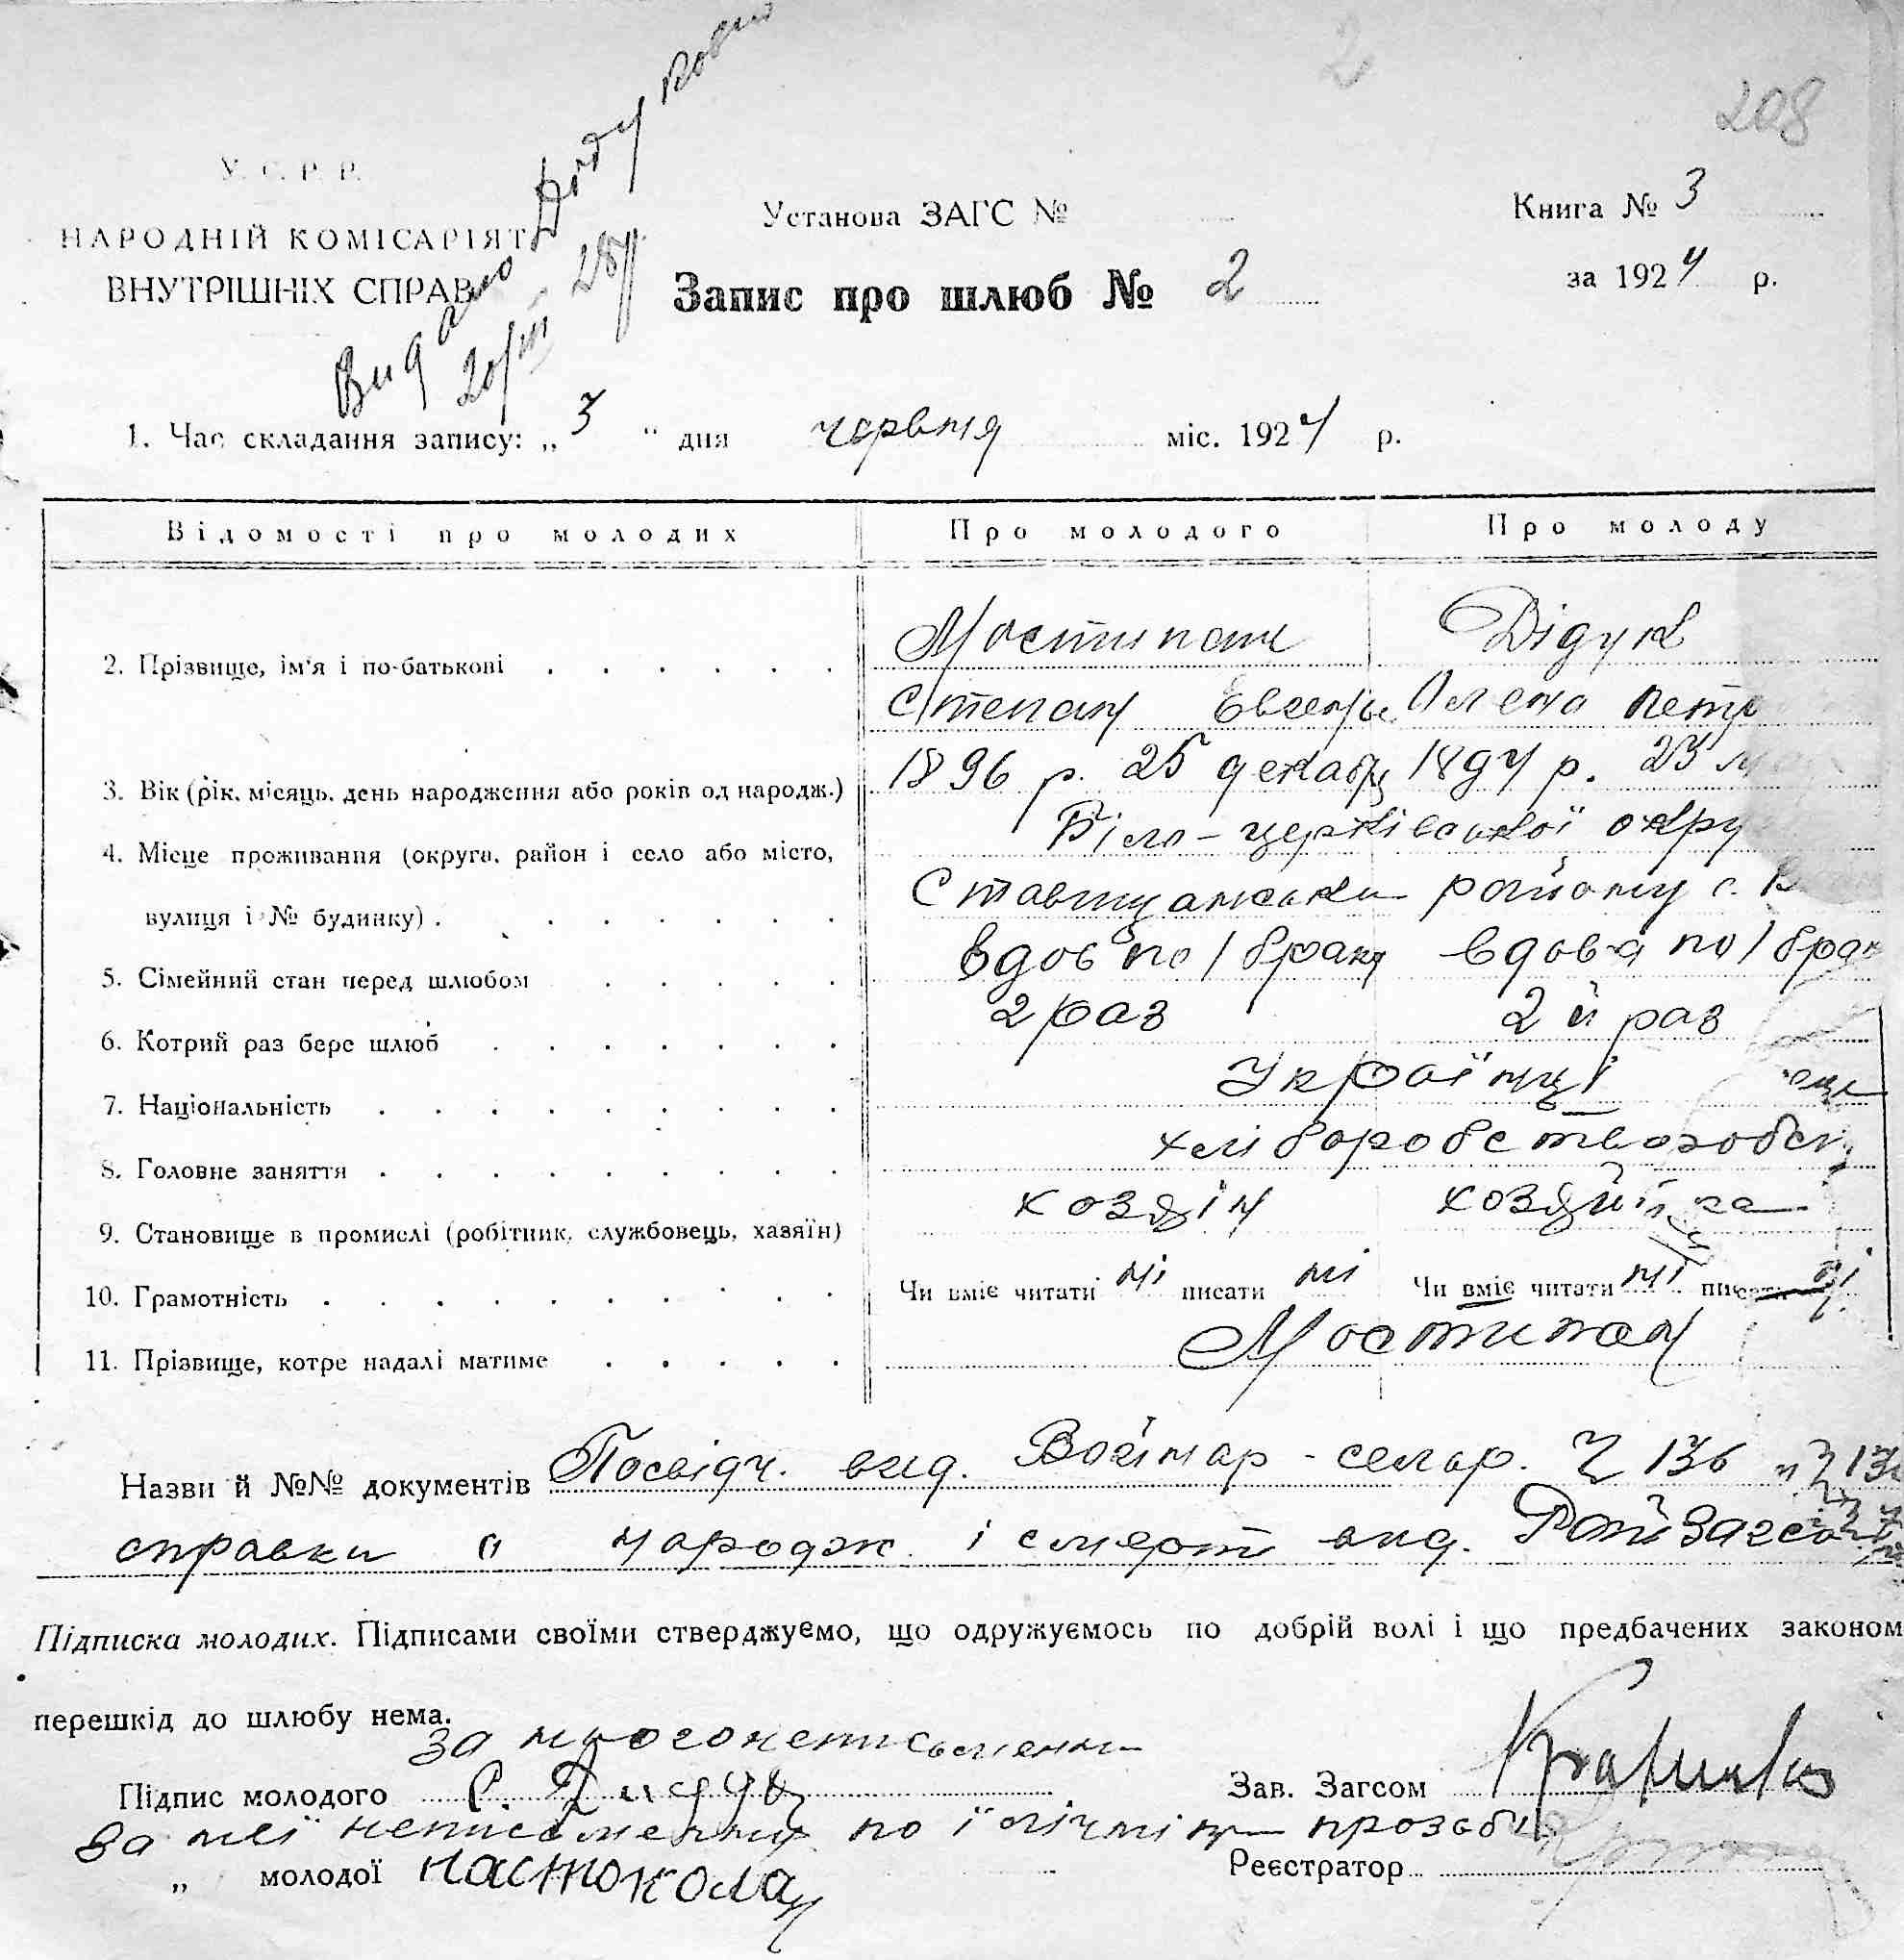 2
208
У. С. Р. Р.
НАРОДНІЙ КОМІСАРІЯТ
ВНУТРІШНІХ СПРАВ
Видано Дідук
20/III 28 р.
Установа ЗАГС №
Запис про шлюб № 2
Книга № 3
за 1924 р.
1. Час складання запису: „ 3 “ дня червня міс. 1924 р.
Відомості про молодих Про молодого Про молоду
2. Прізвище, ім'я і по-батькові Мостипан Дідук
Степан Евсеев Олена Петр
3. Вік (рік, місяць, день народження або років од народж.) 1896 р. 25 декабр 1894 р. 23
4. Місце проживання (округа, район і село або місто, Біло-церківської окру
вулиця і № будинку) . Ставищанськи району с. В
5. Сімейний стан перед шлюбом вдов по 1 браку вдова по 1 брак
6. Котрий раз бере шлюб 2 раз 2й раз
7. Національність Українці
8. Головне заняття хліборобство
9. Становище в промислі (робітник, службовець, хазяїн) хозяін хозяйка
10. Грамотність Чи вміє читати ні писати ні Чи вміє читати ні писати ні
11. Прізвище, котре надалі матиме Мостипан
Назви й №№ документів Посвідч. вид. сельр. Ч 136 и Ч 13
справки о народж. і смерт вид. РайЗагсом
Підписка молодих. Підписами своїми стверджуємо, що одружуємось по добрій волі і що предбачених законом
перешкід до шлюбу нема.
за
Підпис молодого С. Дидук
Зав. Загсом
За неї неписьменну по її прозьби
„ молодої
Реєстратор